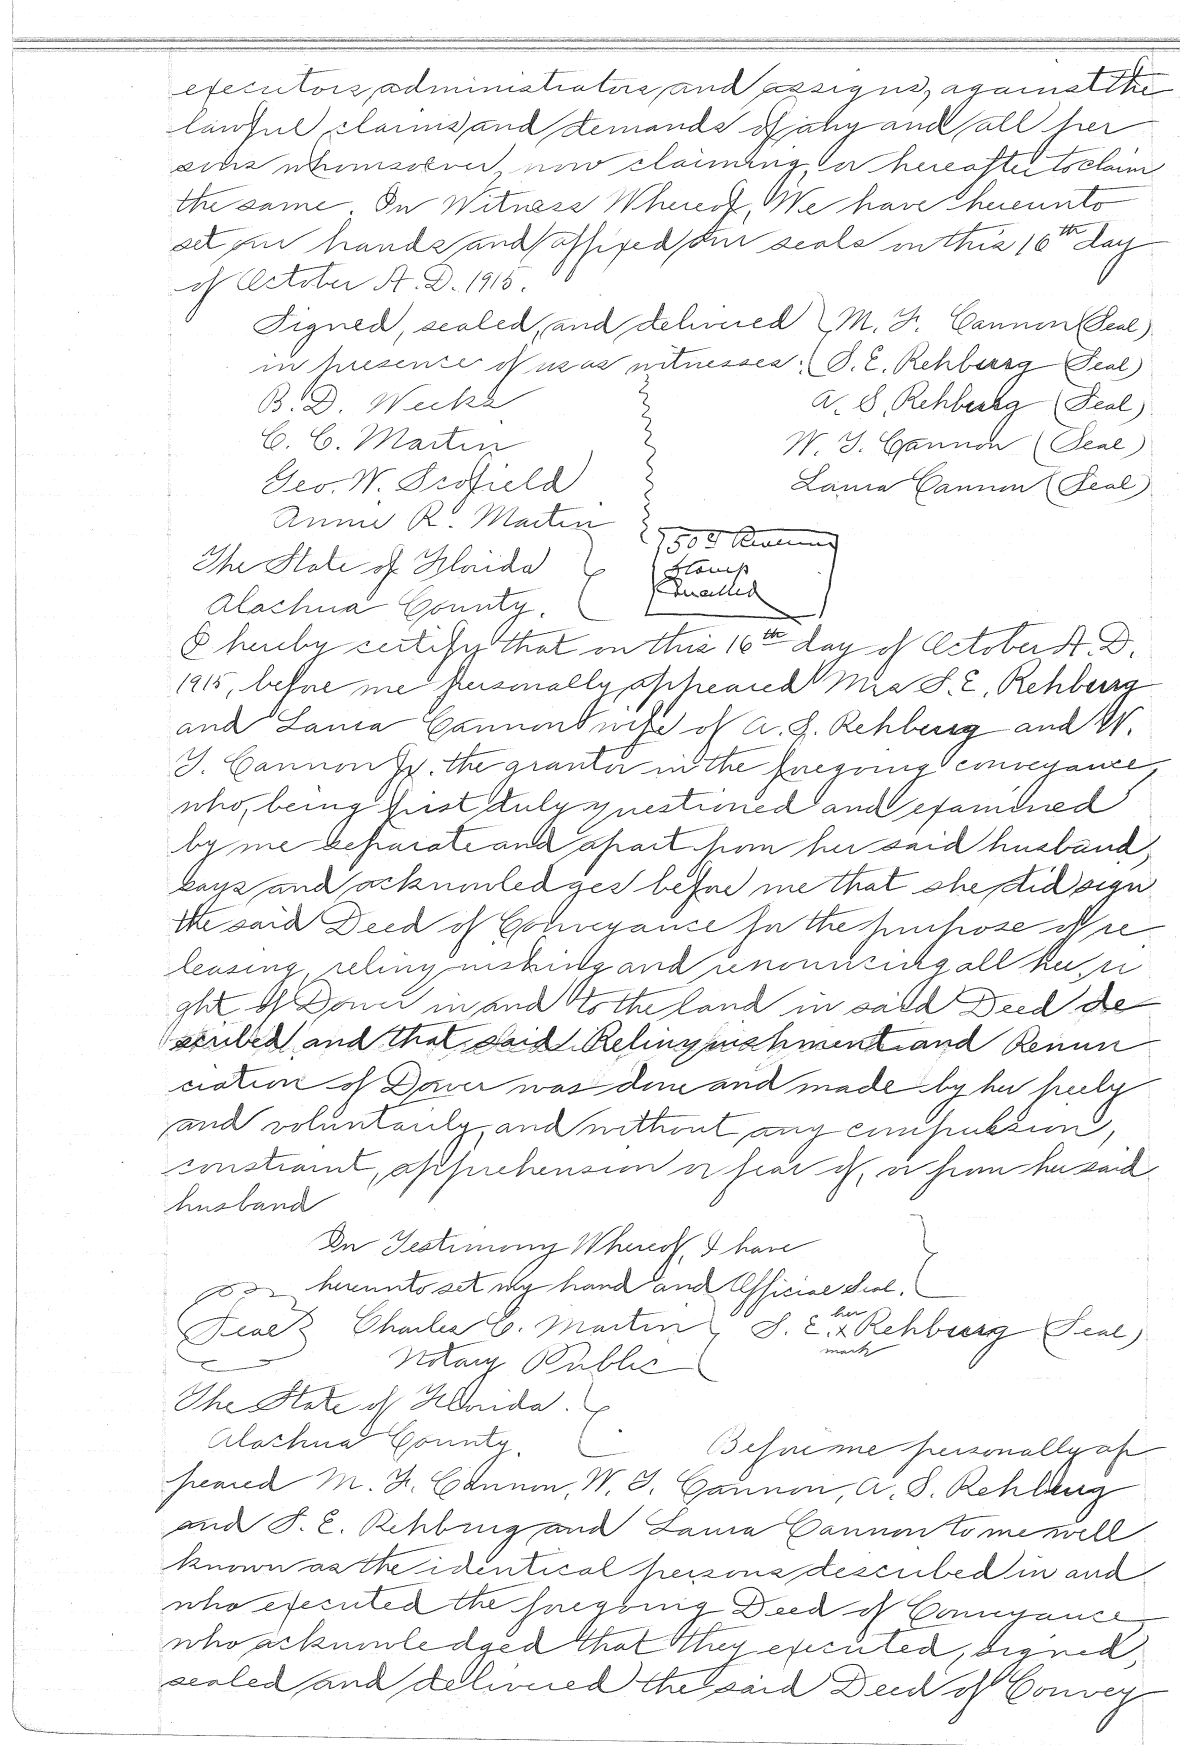 executors, administrators, and assigns, against the
lawful claims and demands of any and all per
sons whomsoever, now claiming, or hereafter to claim
the same. In Witness Whereof, We have hereunto
set our hands and affixed our seals on this 16th day
of October A. D. 1915.
Signed, sealed, and delivered M. F. Cannon (Seal)
in presence of us as witnesses: S. E. Rehberg (Seal)
B. D. Weeks A. S. Rehberg (Seal)
C. C. Martin W. J. Cannon (Seal)
Geo. W. Scofield Laura Cannon (Seal)
Annie R. Martin
50¢ Revenue
Stamp
Cancelled
The State of Florida
Alachua County.
I hereby certify that on this 16th day of October A. D.
1915, before me personally appeared Mrs S. E. Rehberg
and Laura Cannon wife of A. S. Rehberg and W.
J. Cannon Jr. the grantor in the foregoing conveyance,
who, being first duly questioned and examined
by me separate and apart from her said husband,
says and acknowledges before me that she did sign
the said Deed of Conveyance for the purpose of re
leasing, relinquishing and renouncing all her ri
ght of Dower in and to the land in said Deed de
scribed, and that said Relinquishment and Renun
ciation of Dower was done and made by her freely
and voluntarily, and without any compulsion,
constraint, apprehension or fear of, or from her said
husband
In Testimony Whereof, I have
hereunto set my hand and Official Seal.
Seal Charles C. Martin S. E. her x mark Rehberg (Seal)
Notary Public
The State of Florida.
Alachua County. Before me personally ap
peared M. F. Cannon, W. J. Cannon, A. S. Rehberg
and S. E. Rehberg and Laura Cannon to me well
known as the identical persons described in and
who executed the foregoing Deed of Conveyance,
who acknowledged that they executed, signed,
sealed and delivered the said Deed of Convey